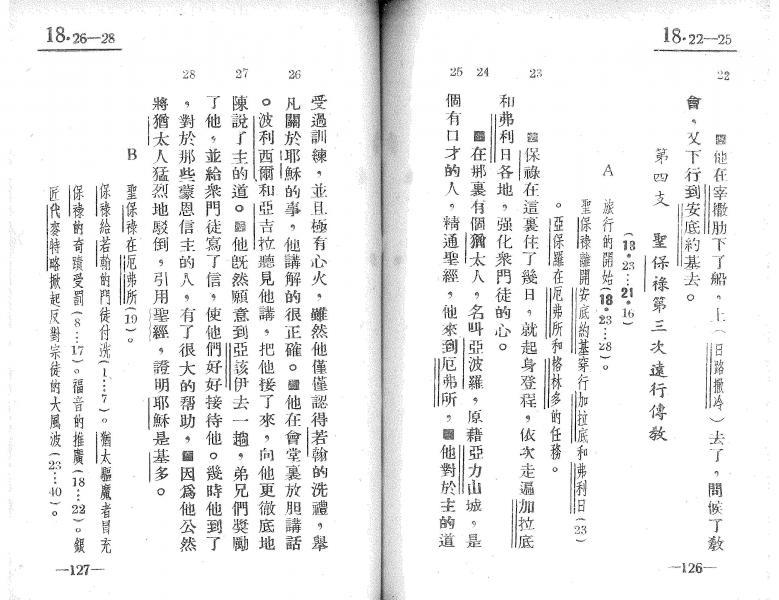 18·22—25
22
他在宰撒肋下了船，上（日路撒冷）去了，問候了教
會，又下行到安底約基去。
第四支 聖保祿第三次遠行傳教
(18·23…21·16)
A 旅行的開始(18·23…28)。
聖保祿離開安底約基穿行加拉底和弗利日(23)
。亞保羅在厄弗所和格林多的任務。
23
保祿在這裏住了幾日，就起身登程，依次走遍加拉底
和弗利日各地，強化衆門徒的心。
24
在那裏有個猶太人，名叫亞波羅，原藉亞力山城，是
25
個有口才的人，精通聖經，他來到厄弗所，他對於主的道
—126—
18·26—28
受過訓練，並且極有心火，雖然他僅僅認得若翰的洗禮，舉
26
凡關於耶穌的事，他講解的很正確。他在會堂裏放胆講話
。波利西爾和亞吉拉聽見他講，把他接了來，向他更徹底地
27
陳說了主的道。他旣然願意到亞該伊去一趟，弟兄們獎勵
了他，並給衆門徒寫了信，使他們好好接待他。幾時他到了
28
，對於那些蒙恩信主的人，有了很大的帮助，因爲他公然
將猶太人猛烈地駁倒，引用聖經，證明耶穌是基多。
B 聖保祿在厄弗所(19)。
保祿給若翰的門徒付洗(1…7)。猶太驅魔者冒充
保祿的奇蹟受罰(8…17)。福音的推廣(18…22)。銀
匠代麥特略掀起反對宗徒的大風波(23…40)。
—127—